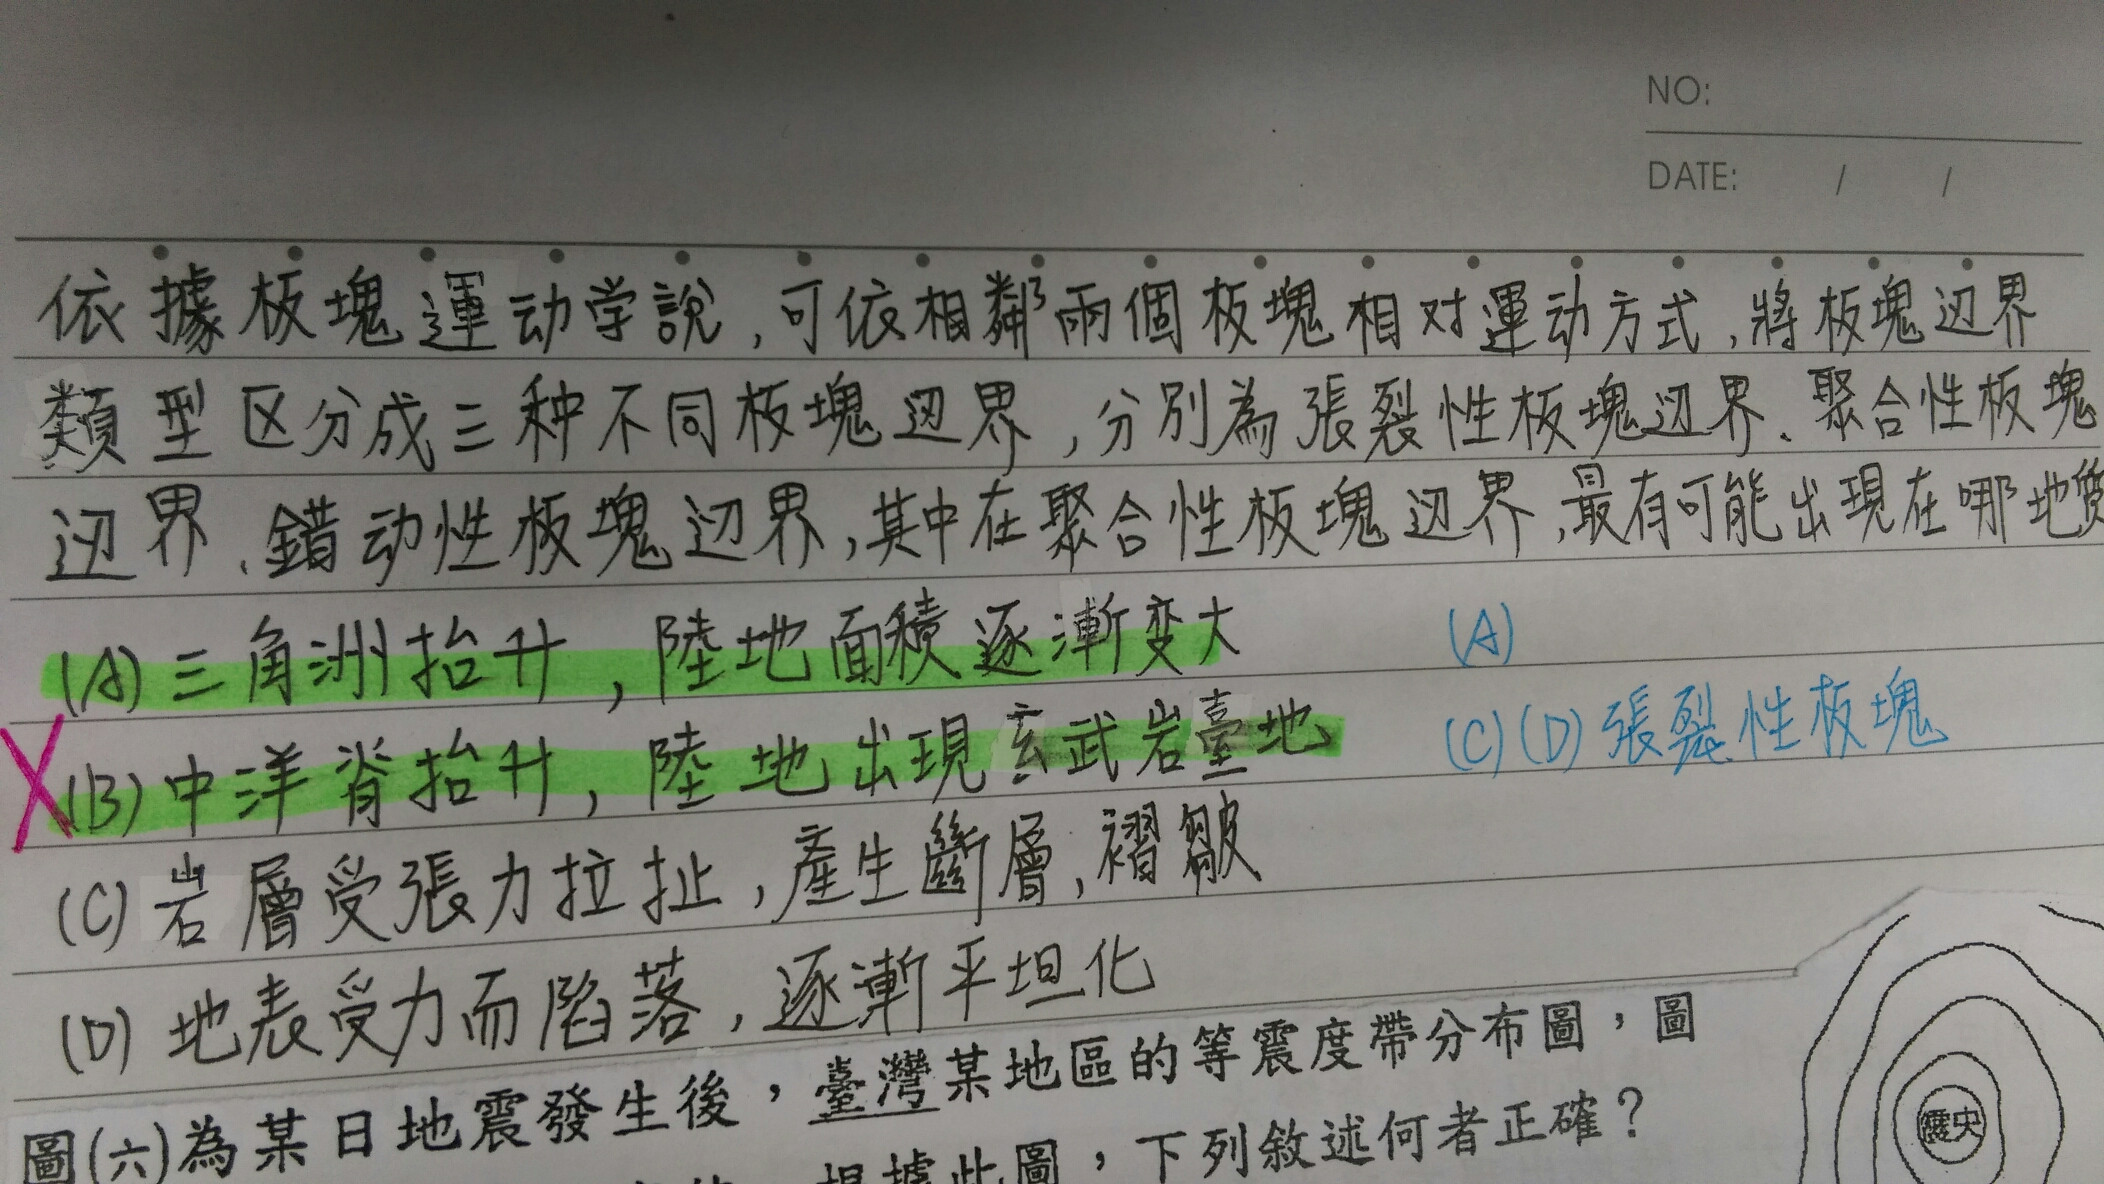 NO:
DATE: / /
依據板塊運动学說,可依相鄰兩個板塊相对運动方式,將板塊边界
類型区分成三种不同板塊边界,分別為張裂性板塊边界、聚合性板塊
边界、錯动性板塊边界,其中在聚合性板塊边界,最有可能出現在哪地質
(A)三角洲抬升,陸地面積逐漸变大 (A)
X(B)中洋脊抬升,陸地出現玄武岩臺地 (C)(D)張裂性板塊
(C)岩層受張力拉扯,產生斷層,褶皺
(D)地表受力而陷落,逐漸平坦化
圖(六)為某日地震發生後,臺灣某地區的等震度帶分布圖,圖
根據此圖,下列敘述何者正確?
震央